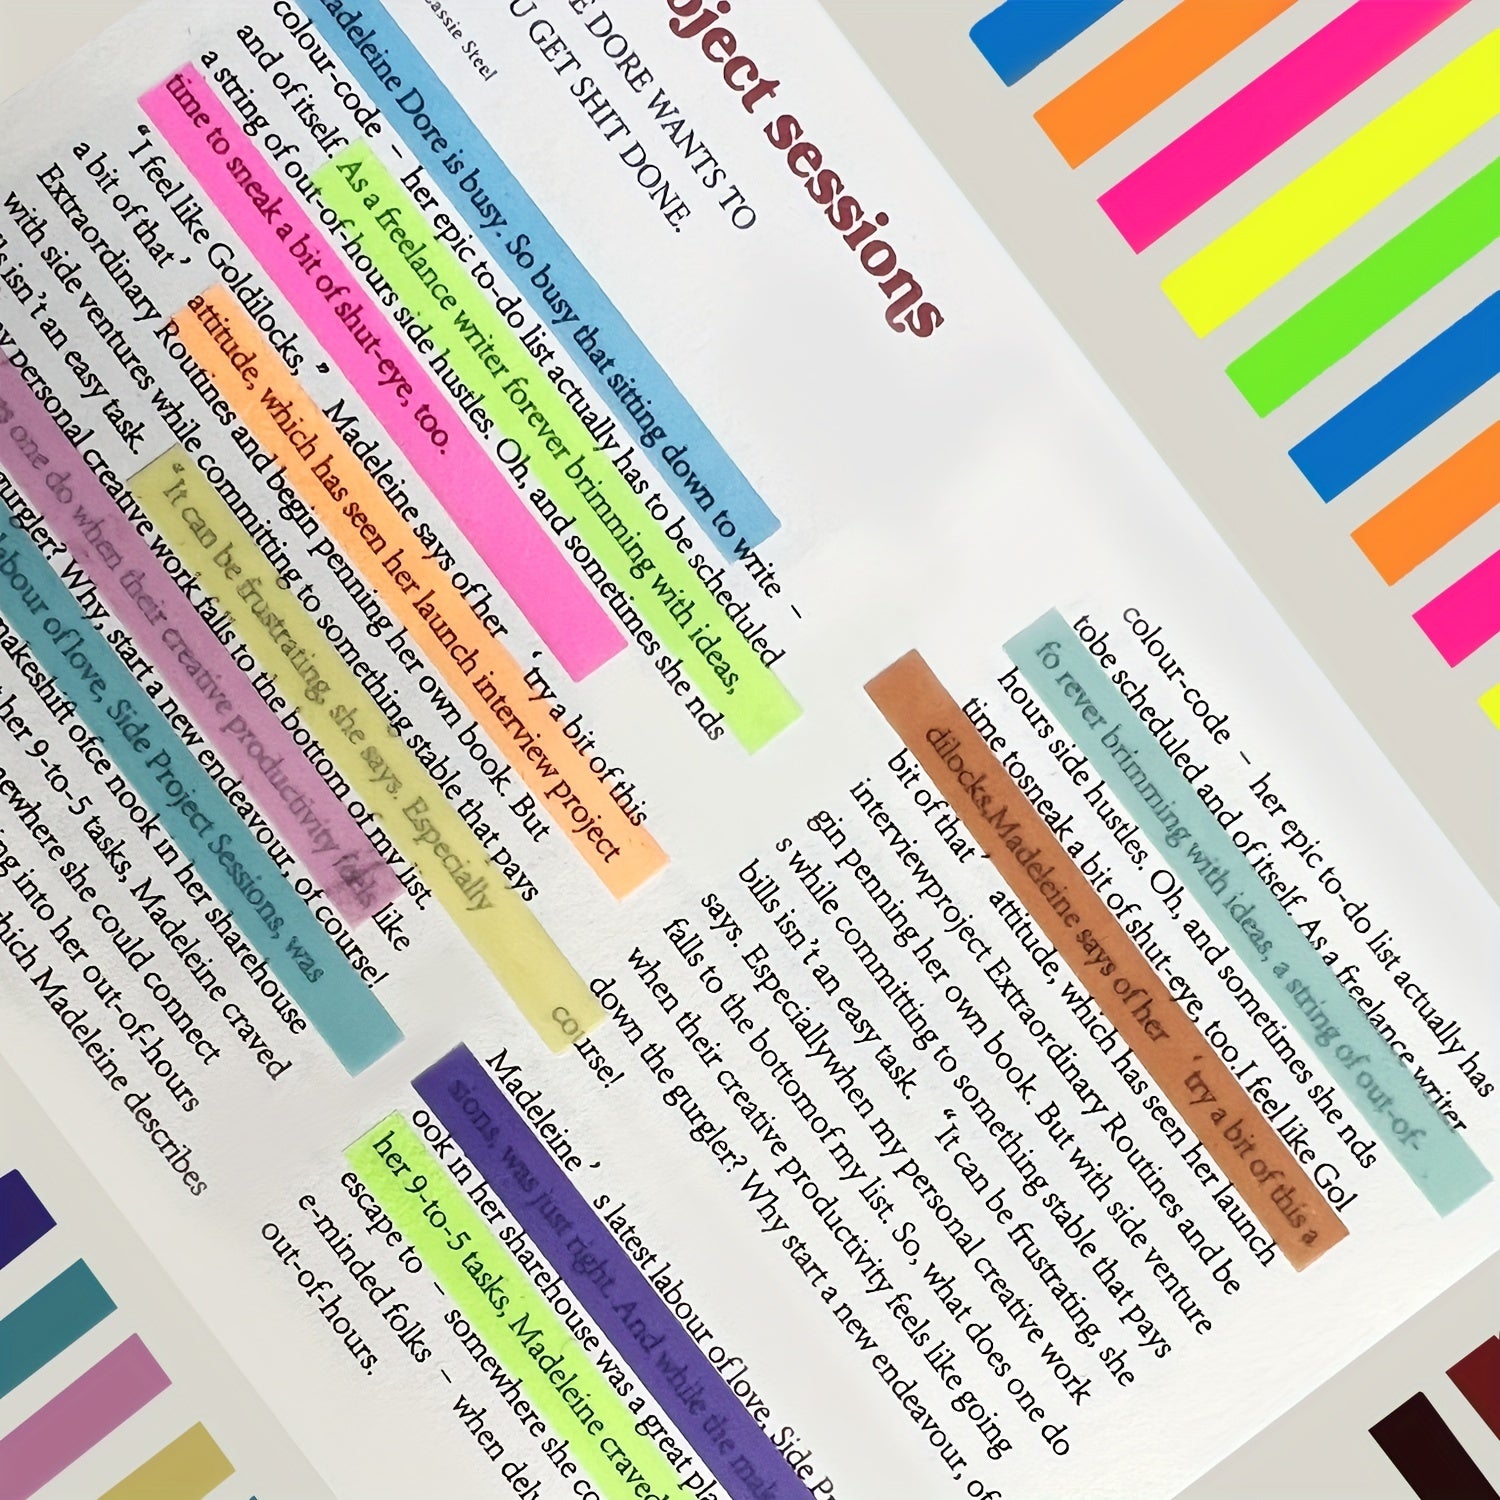 oject sessions
E DORE WANTS TO
U GET SHIT DONE.
assie Steel
adeleine Dore is busy. So busy that sitting down to write –
colour-code – her epic to-do list actually has to be scheduled
and of itself. As a freelance writer forever brimming with ideas,
a string of out-of-hours side hustles. Oh, and sometimes she nds
time to sneak a bit of shut-eye, too.
“I feel like Goldilocks,” Madeleine says of her ‘try a bit of this
a bit of that’ attitude, which has seen her launch interview project
Extraordinary Routines and begin penning her own book. But
with side ventures while committing to something stable that pays
ls isn’t an easy task. “It can be frustrating, she says. Especially
y personal creative work falls to the bottom of my list.
s one do when their creative productivity feels like
gurgler? Why, start a new endeavour, of course!
labour of love, Side Project Sessions, was
makeshift ofce nook in her sharehouse
her 9-to-5 tasks, Madeleine craved
ewhere she could connect
ing into her out-of-hours
hich Madeleine describes
colour-code – her epic to-do list actually has
tobe scheduled and of itself. As a freelance writer
fo rever brimming with ideas, a string of out-of-
hours side hustles. Oh, and sometimes she nds
time tosneak a bit of shut-eye, too.I feel like Gol
dilocks,Madeleine says of her ‘try a bit of this a
bit of that’ attitude, which has seen her launch
interviewproject Extraordinary Routines and be
gin penning her own book. But with side venture
s while committing to something stable that pays
bills isn’t an easy task. “It can be frustrating, she
says. Especiallywhen my personal creative work
falls to the bottomof my list. So, what does one do
when their creative productivity feels like going
down the gurgler? Why start a new endeavour, of
course!
Madeleine’s latest labour of love, Side Pr
sions, was just right. And while the mak
ook in her sharehouse was a great pla
her 9-to-5 tasks, Madeleine craved
escape to – somewhere she co
e-minded folks – when delv
out-of-hours.